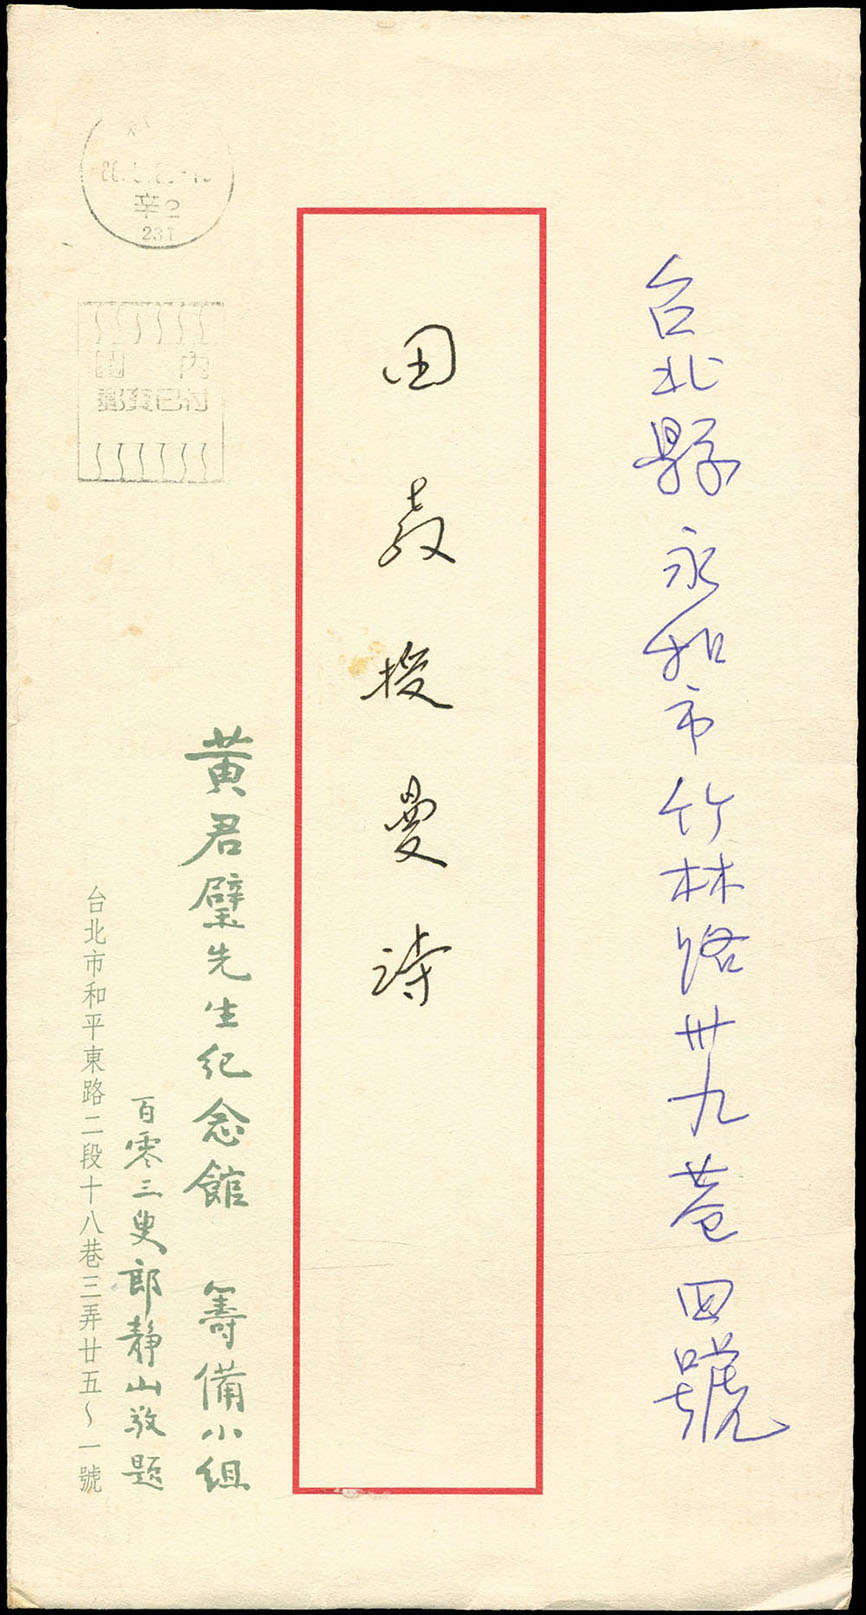 台北縣永和市竹林路卅九巷四號
田教授曼詩
黃君璧先生紀念館 籌備小組
百零三叟郎靜山敬題
台北市和平東路二段十八巷三弄廿五~一號
辛2
231
國內
郵資已付